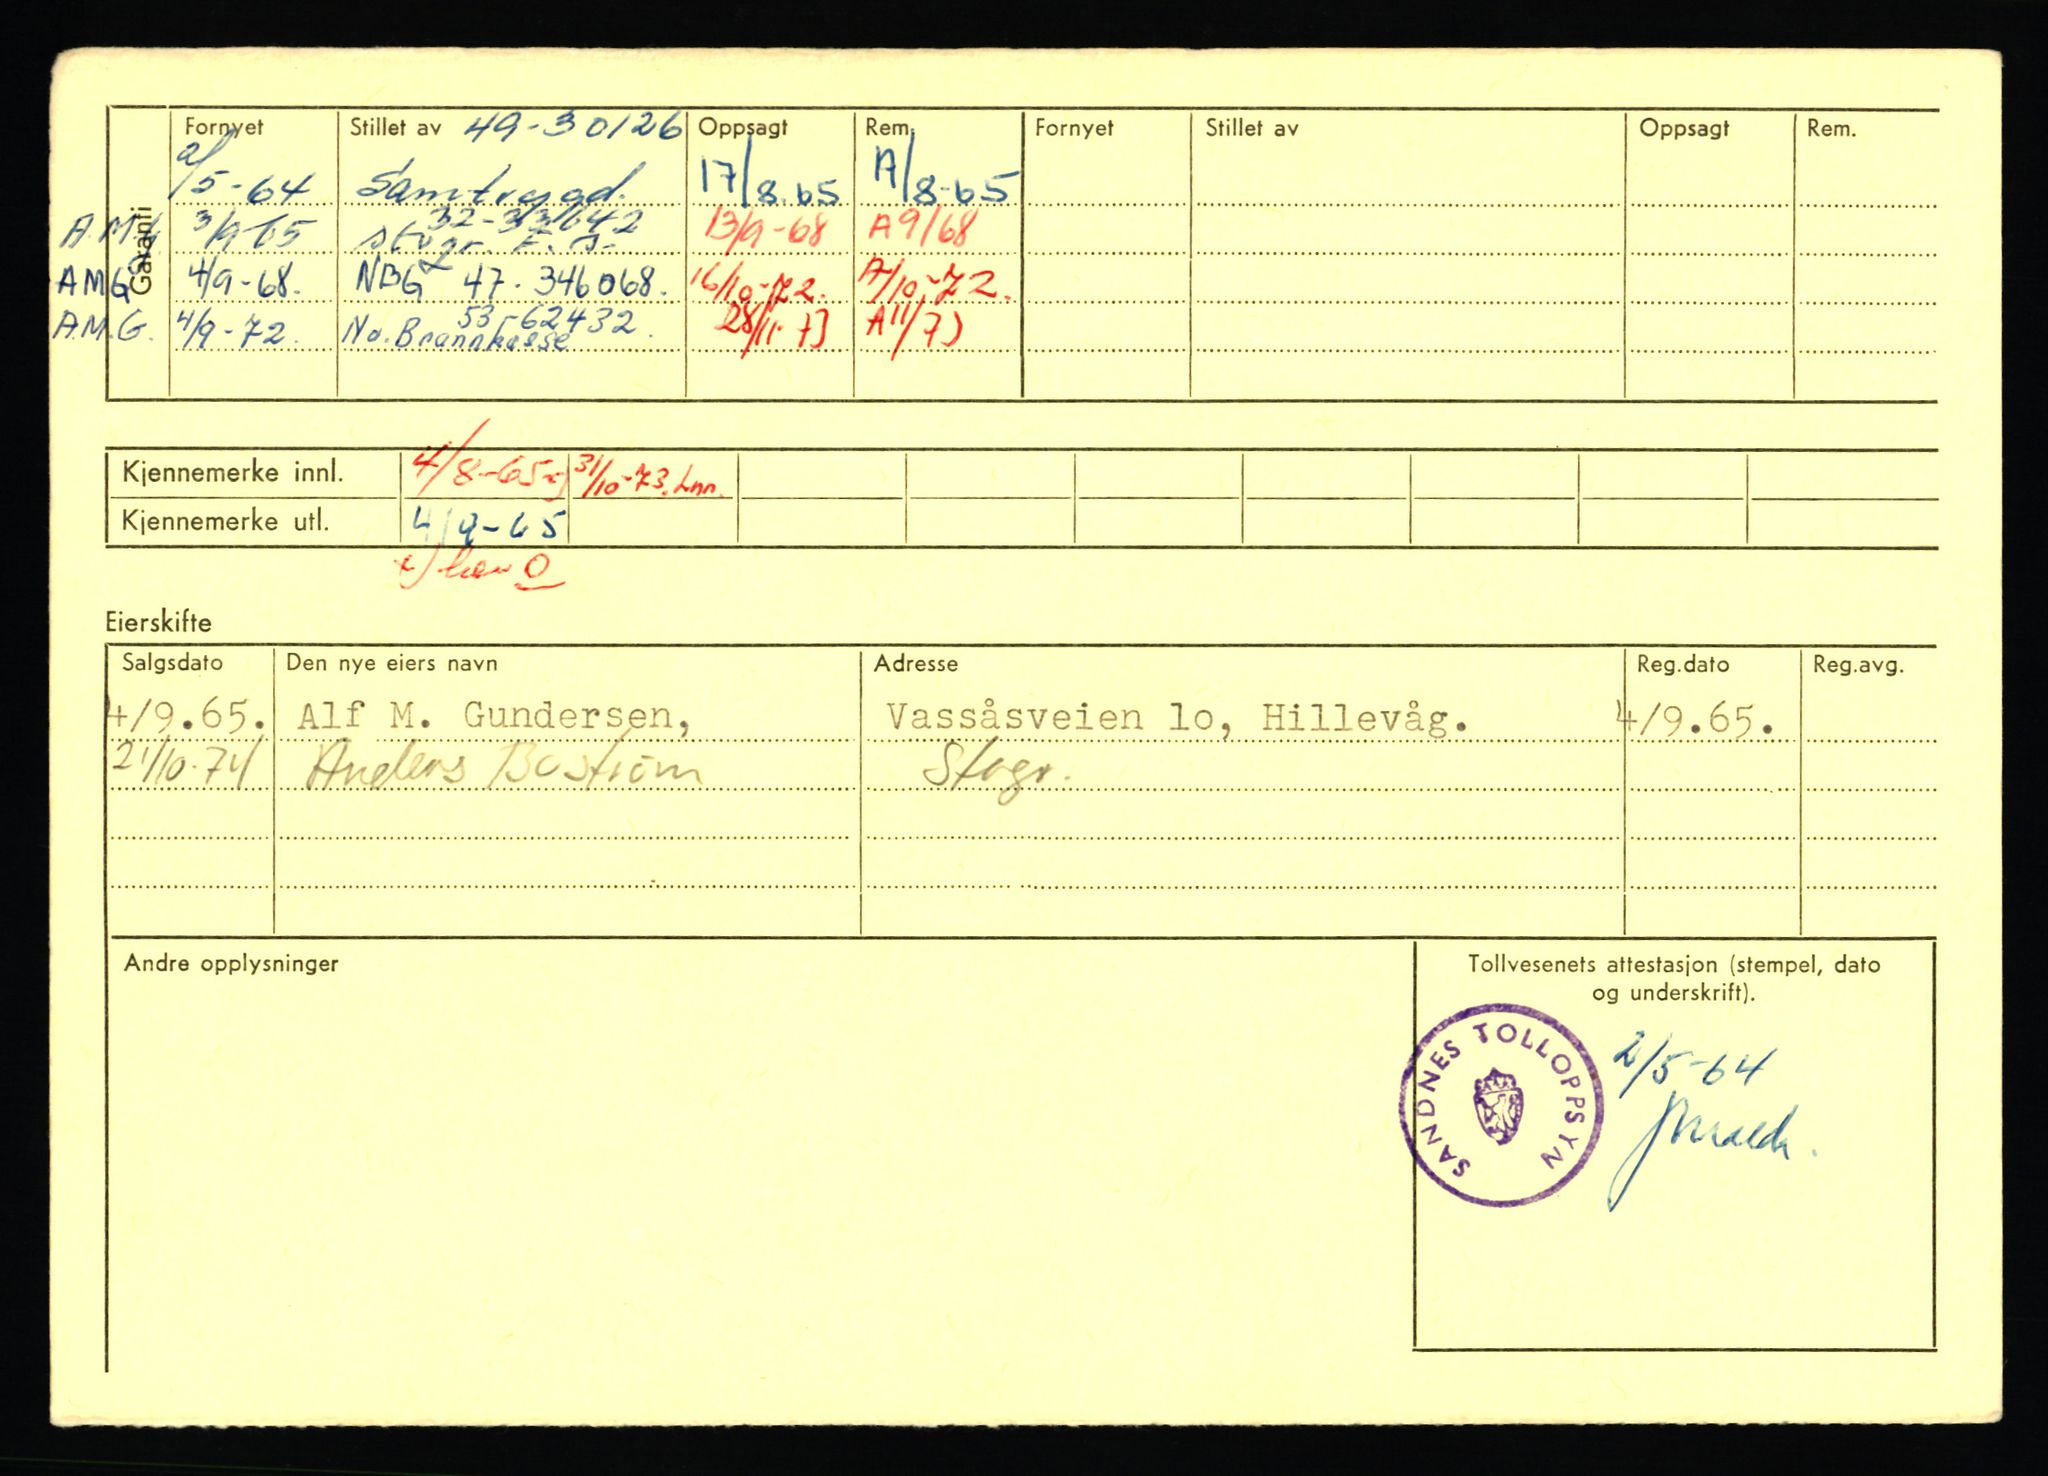 Garanti
Fornyet Stillet av 49-30126 Oppsagt Rem. Fornyet Stillet av Oppsagt Rem.
2/5-64 Samtrygd. 17/8.65 A/8-65
32-313642
A.M.G. 3/9-65 Stvgr. F. S. 13/9-68 A9/68
A.M.G. 4/9-68. NBG 47. 346068. 16/10-72. A/10-72.
53-62432.
A.M.G. 4/9-72. No. Brannkasse 28/11-73 A11/73
Kjennemerke innl. 4/8-65 x) 31/10-73.
Kjennemerke utl. 4/9-65
x) 0
Eierskifte
Salgsdato Den nye eiers navn Adresse Reg.dato Reg.avg.
4/9.65. Alf M. Gundersen, Vassåsveien lo, Hillevåg. 4/9.65.
21/10-74 Anders Bostrøm Stvgr.
Andre opplysninger
Tollvesenets attestasjon (stempel, dato
og underskrift).
SANDNES TOLLOPPSYN
2/5-64